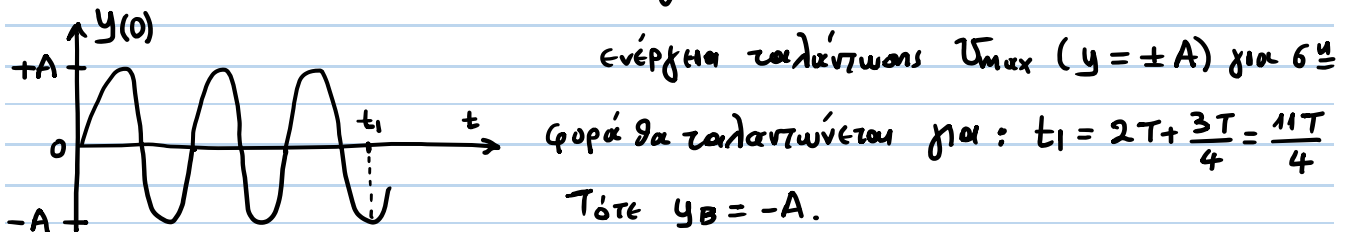 y(0)
+A
0
-A
t₁
t
ενέργεια ταλάντωσης Umax (y = ± A) για 6η
φορά θα ταλαντώνεται για : t₁ = 2T + 3T/4 = 11T/4
Τότε yB = -A.